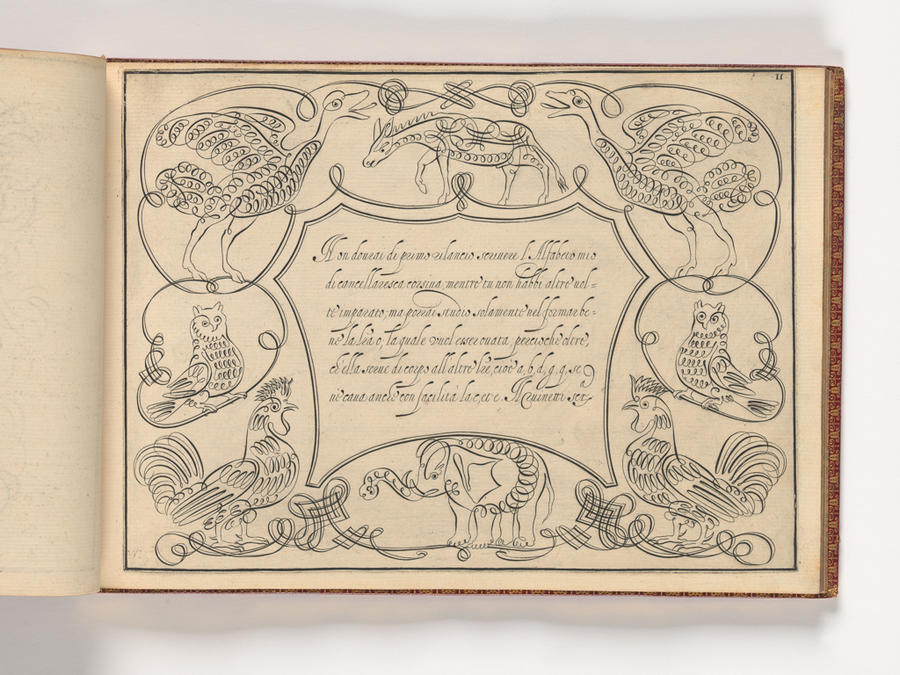 11
Non dourai di primo slancio scriuere l'Alfabeto mio
di cancellaresca corsiua, mentre tu non habbi altre uol=
te imparato; ma porrai studio solamente nel formar be=
ne la lra o, la quale vuol essere ouata, percioche oltre,
ch'ella serue di corpo all'altre lre, cioè a, b, d, g, q, se
ne caua anche con facilità la c, et e. Il Curionetti scr.